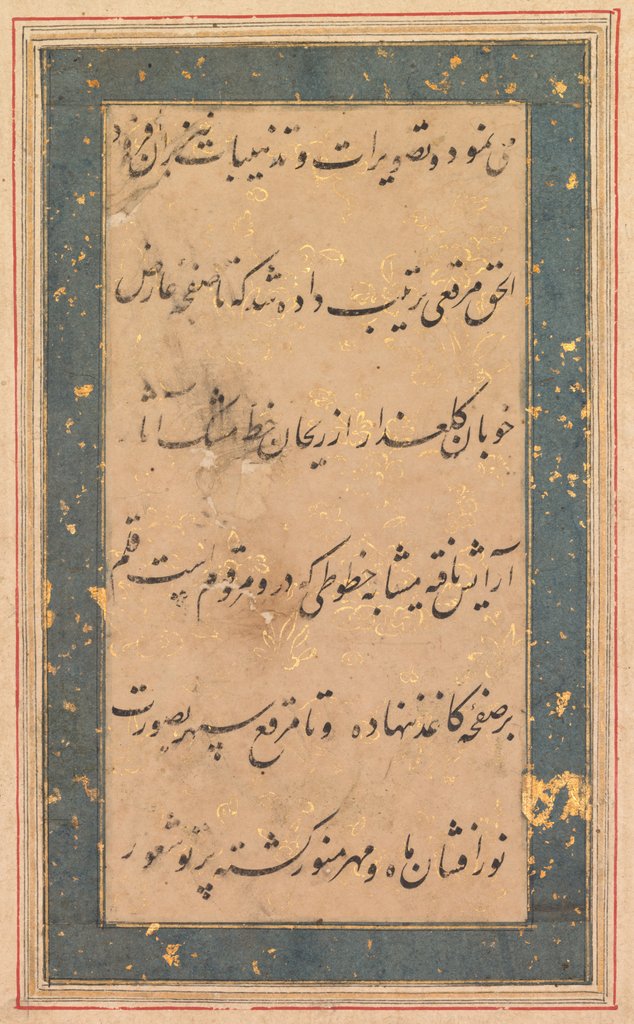 می نمود و تصویرات و تذهیبات نیز بران فزود
الحق مرقعی ترتیب داده شد که تا صفحهٔ عارض
خوبان گلعذار از ریحان خط مشک آسا
آرایش یافته مشابه خطوطی که در و مرقوم است قلم
بر صفحهٔ کاغذ نهاده و تا مرقع سپهر بصورت
نور افشان ماه و مهر منور گشته پرتو شعور